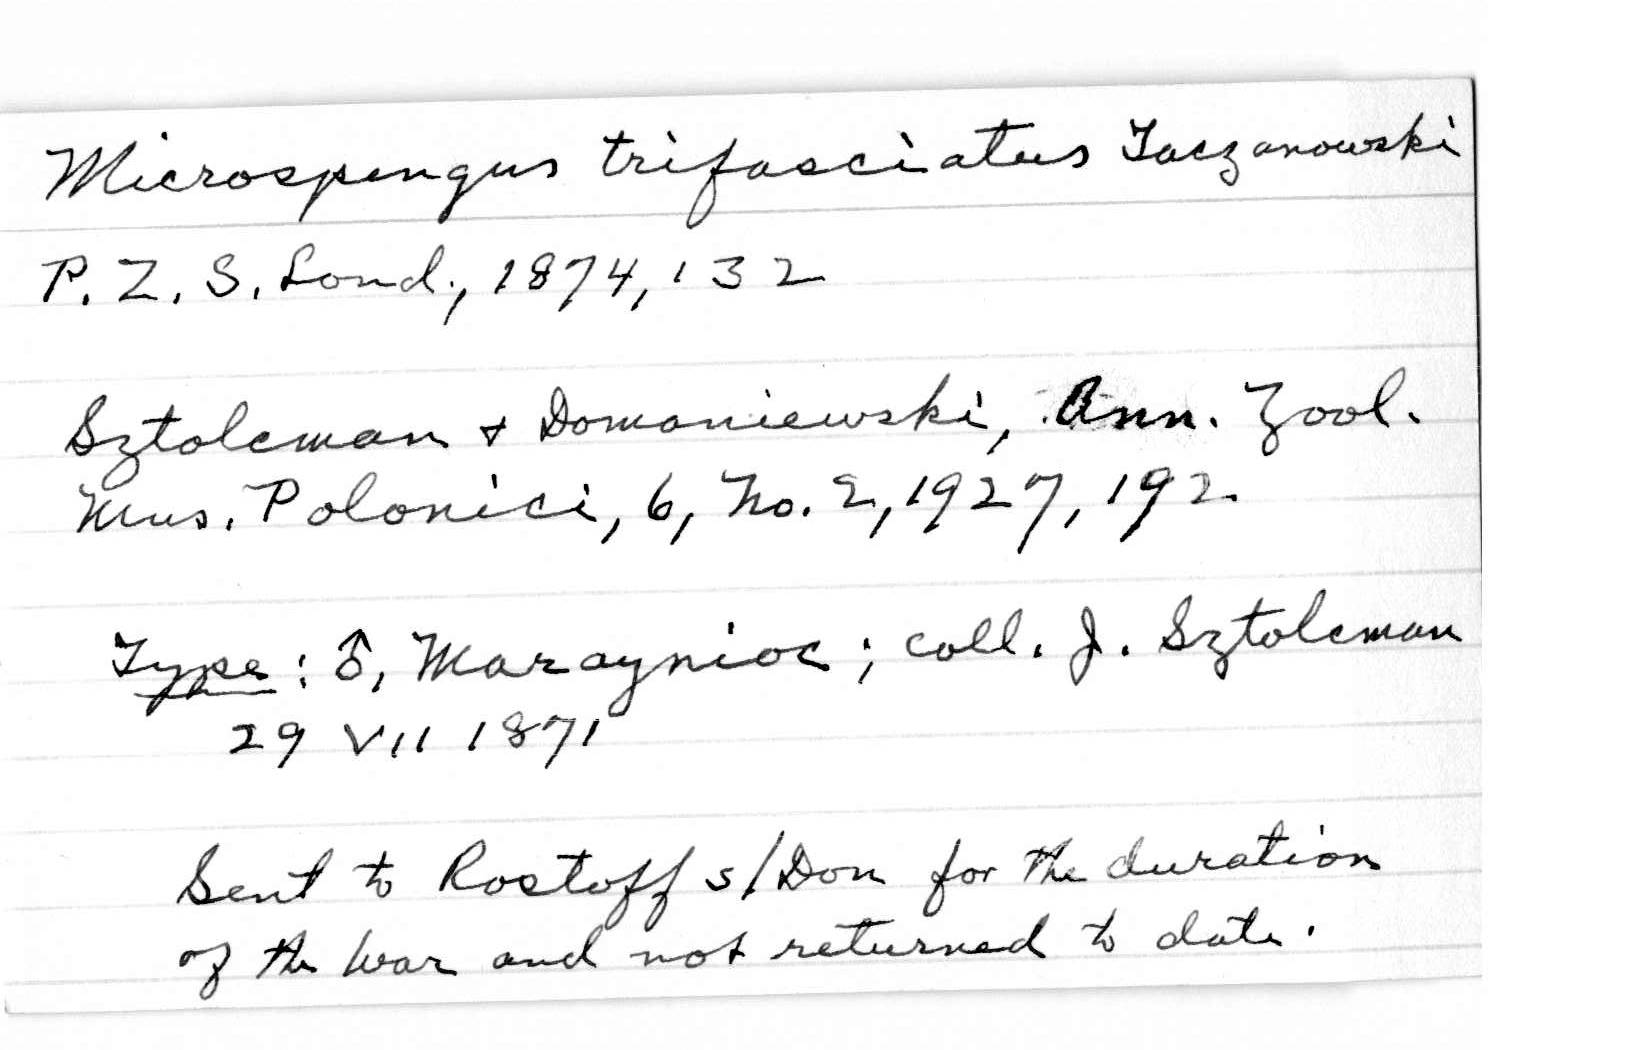 Microspingus trifasciatus Taczanowski
P. Z. S. Lond., 1874, 132
Sztolcman & Domaniewski, Ann. Zool.
Mus. Polonici, 6, No. 2, 1927, 192
Type: ♂, Maraynioc; coll. J. Sztolcman
29 VII 1871
Sent to Rostoff s/Don for the duration
of the war and not returned to date.